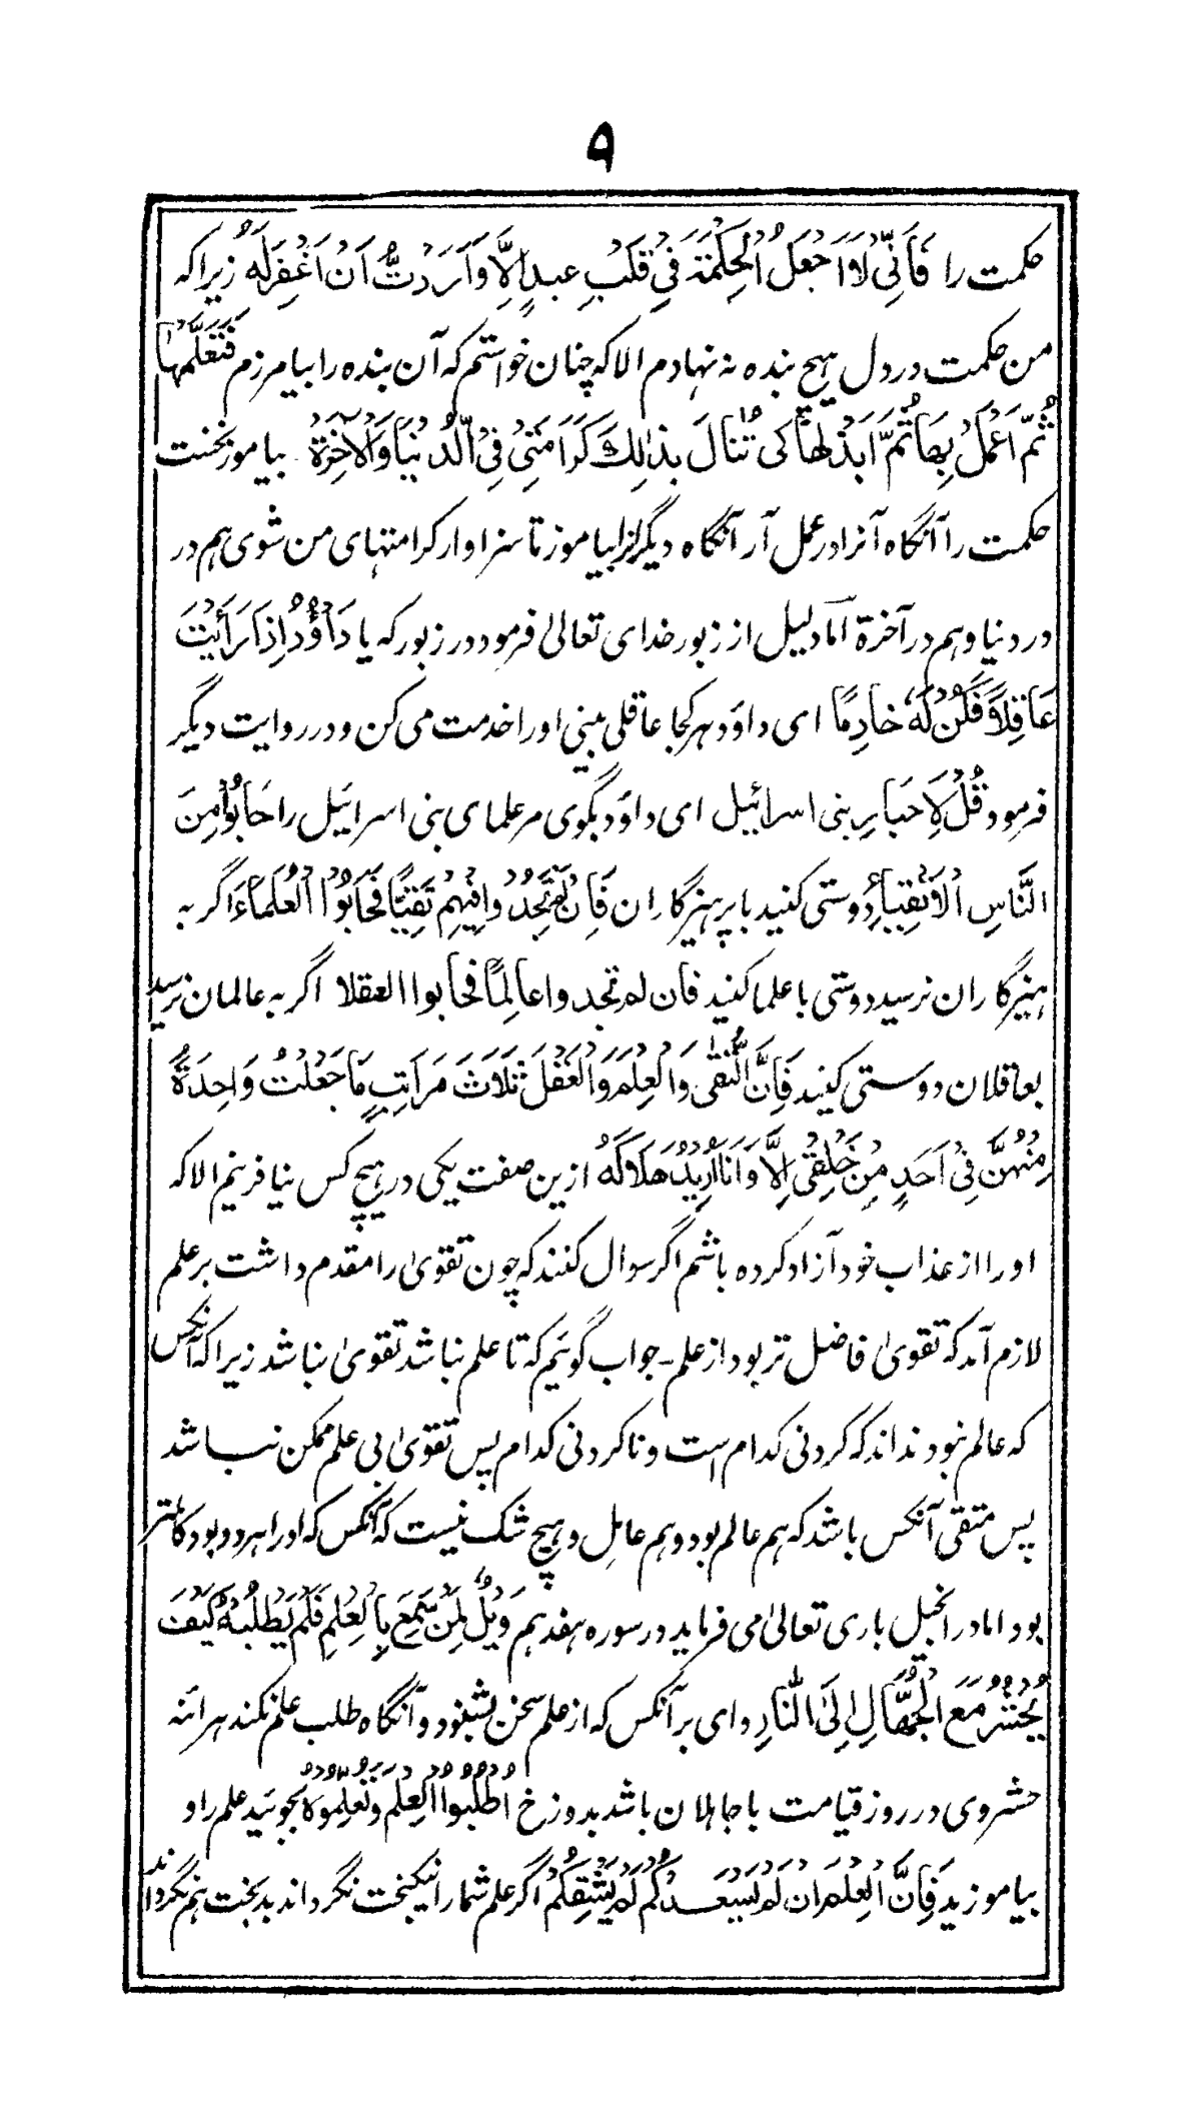 ۹
حکمت را فَاَنِّیْ لَا اَجْعَلُ الْحِکْمَةَ فِیْ قَلْبِ عبدٍ اِلَّا وَاَرَدْتُّ اَنْ اَغْفِرَلَهٗ زیراکه
من حکمت در دل هیچ بنده نه نهادم الا که چنان خواستم که آن بنده را بیامرزم فَتَعَلَّمْهَا
ثُمَّ اعْمَلْ بِهَا ثُمَّ ابْذُلْهَا کَی تُنَالَ بِذٰلِکَ کَرَامَتِیْ فِی الدُّنْیَا وَالْاٰخِرَةِ بیاموز نخست
حکمت را آنگاه آنرا در عمل آر آنگاه دیگرانرا بیاموز تا سزاوار کرامتهای من شوی هم در
در دنیا و هم در آخرة اما دلیل از زبور خدای تعالیٰ فرمود در زبور که یا دَاوٗدُ اِذَا رَأَیْتَ
عَاقِلًا فَکُنْ لَهٗ خَادِمًا ای داؤد هر کجا عاقلی بینی او را خدمت می کن و در روایت دیگر
فرمود قُلْ لِاَحبَارِ بنی اسرائیل ای داؤد بگوی مر علمای بنی اسرائیل را حَابُّوْا مِنَ
النَّاسِ الْاَتْقِیَاءِ دوستی کنید با پرهیزگاران فَاِنْ لَمْ تَجِدُوا فِیْهِمْ تَقِیًّا فَحَابُّوا الْعُلَمَاءَ اگر به
هیزگاران نرسید دوستی با علما کنید فان لم تجدوا عالِمًا فحابوا العقلا اگر به عالمان نرسید
بعاقلان دوستی کنید فَاِنَّ التُّقٰی وَالْعِلْمَ وَالْعَقْلَ ثَلَاثَ مَرَاتِبٍ مَا جَعَلْتُ وَاحِدَةً
مِنْهُنَّ فِیْ اَحَدٍ مِنْ خَلْقِیْ اِلَّا وَاَنَا اُرِیْدُ هَلَاکَهٗ ازین صفت یکی در هیچ کس نیافرینم الا که
او را از عذاب خود آزاد کرده باشم اگر سوال کنند که چون تقویٰ را مقدم داشت بر علم
لازم آمد که تقویٰ فاضل تر بود از علم - جواب گوئیم که تا علم نباشد تقویٰ نباشد زیرا که آنکس
که عالم نبود نداند که کردنی کدام است و نا کردنی کدام پس تقویٰ بی علم ممکن نباشد
پس متقی آنکس باشد که هم عالم بود و هم عامل و هیچ شک نیست که آنکس که او را هر دو بود کاملتر
بود اما در انجیل باری تعالیٰ می فرماید در سوره هفدهم وَیْلٌ لِمَنْ سَمِعَ بِالْعِلْمِ فَلَمْ یَطْلُبْهُ کَیْفَ
یُحْشَرُ مَعَ الْجُهَّالِ اِلَی النَّارِ وای بر آنکس که از علم سخن بشنود و آنگاه طلب علم نکند هرآئنه
حشر وی در روز قیامت با جاهلان باشد بدوزخ اُطْلُبُوا الْعِلْمَ وَتَعَلَّمُوْهُ بجوئید علم را و
بیاموزید فَاِنَّ الْعِلْمَ اِن لَمْ یُسْعِدْکُمْ لَمْ یُشْقِکُمْ اگر علم شما را نیکبخت نگرداند بدبخت هم نگرداند